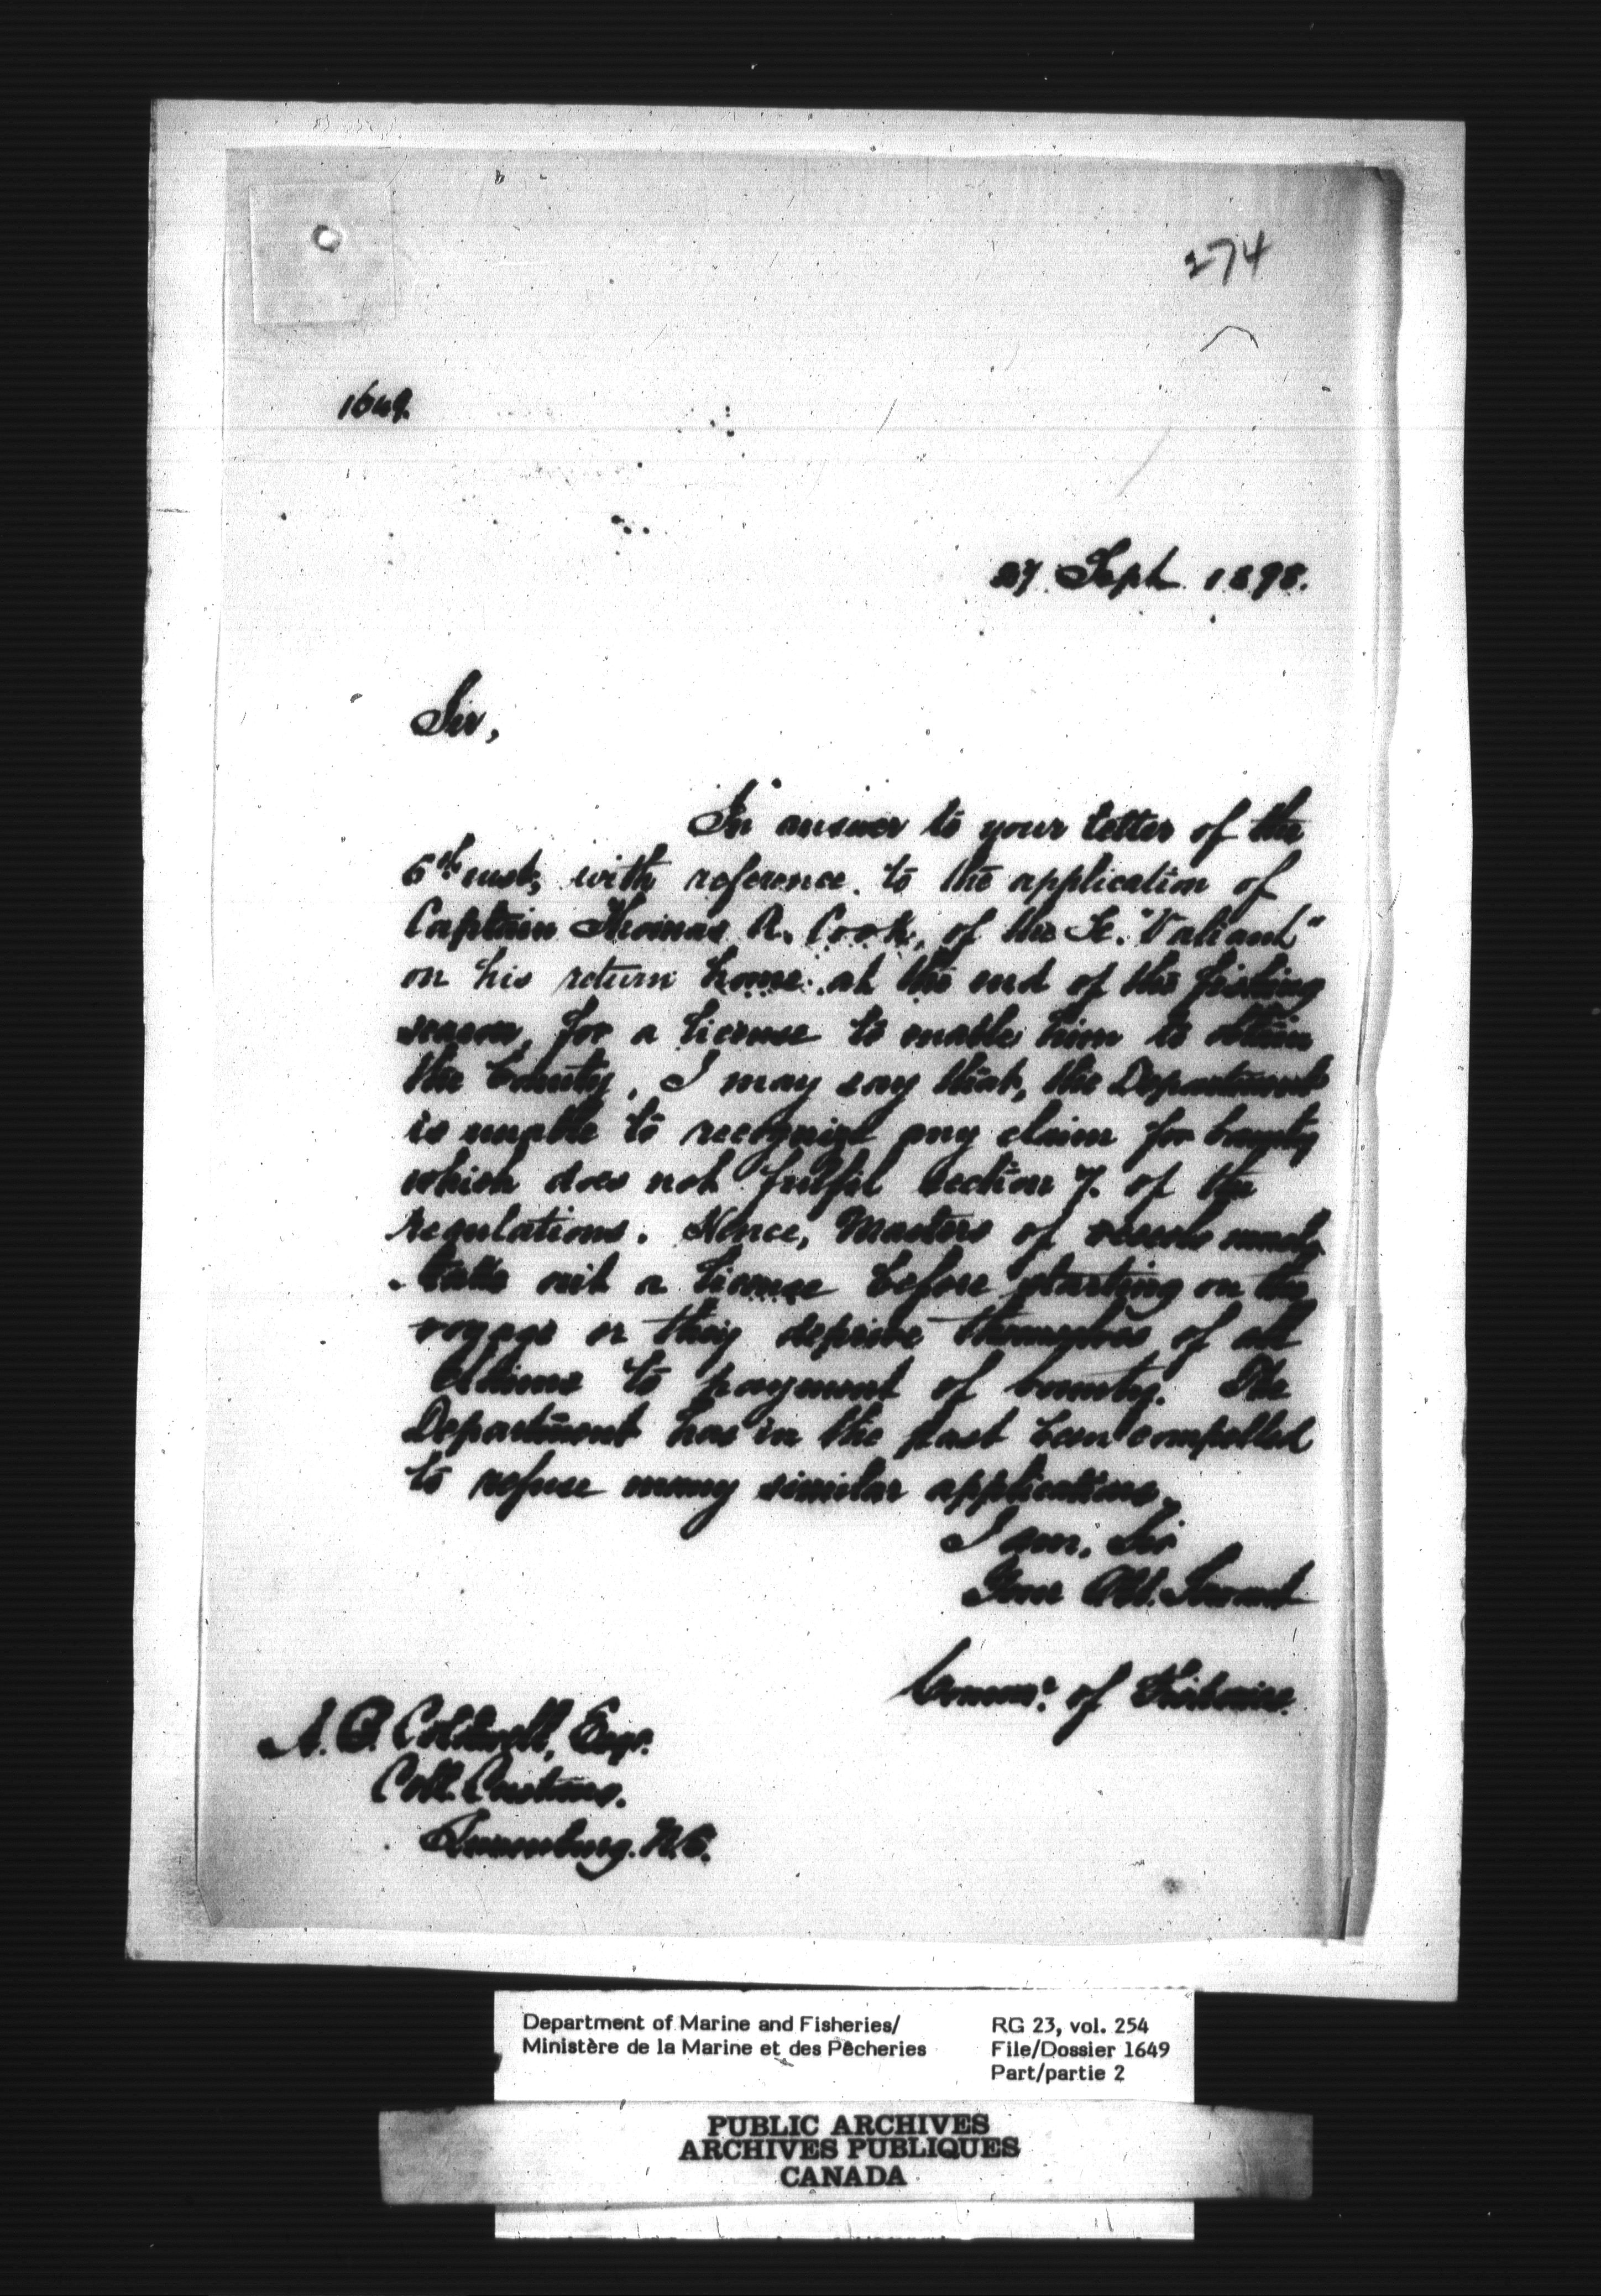 274
1649.
27 Sept. 1898.
Sir,
In answer to your letter of the
6th inst, with reference to the application of
Captain Thomas R. Cook, of the Sc. "Valiant"
on his return home at the end of the fishing
season, for a license to enable him to obtain
the bounty, I may say that, the Department
is unable to recognize any claim for bounty
which does not fulfil section 7. of the
regulations. Hence, Masters of vessels must
take out a license before starting on the
voyage or they deprive themselves of all
claims to payment of bounty. The
Department has in the past been compelled
to refuse many similar applications.
I am, Sir
Your Obt. Servant
Commr. of Fisheries.
Coldwell, Esqr.
Coll. Customs.
Lunenburg. N.S.
Department of Marine and Fisheries/
Ministère de la Marine et des Pêcheries
RG 23, vol. 254
File/Dossier 1649
Part/partie 2
PUBLIC ARCHIVES
ARCHIVES PUBLIQUES
CANADA